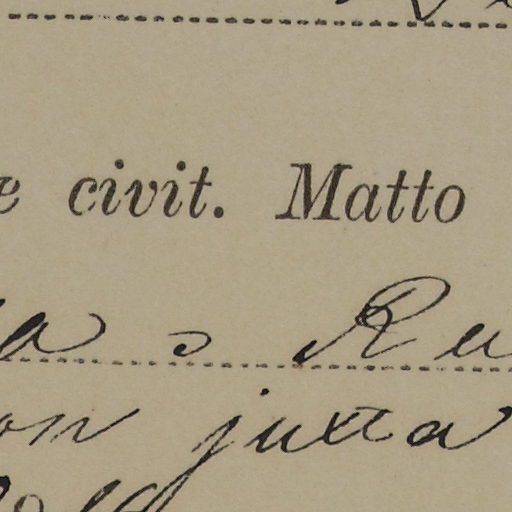 e civit. Matto
a o Ru
on juxta